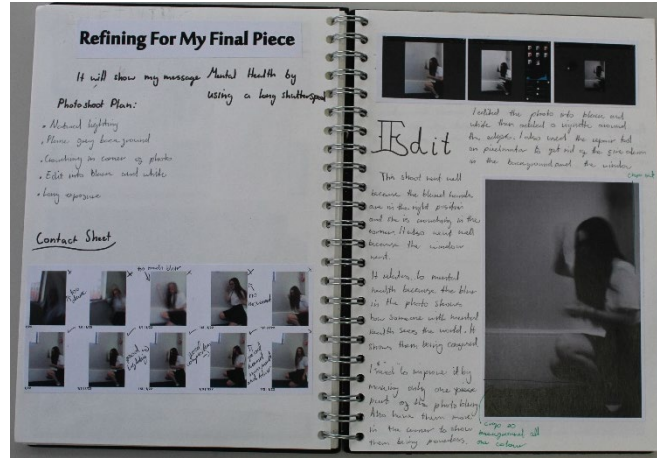 Refining For My Final Piece
It will show my message Mental Health by
using a long shutterspeed
Photoshoot Plan:
• Natural lighting
• Plane grey background
• Crouching in corner of photo
• Edit into black and white
• Long exposure
Contact Sheet
too much blur
too
no
movement
good
Edit
I edited the photo into black and
white then added a vignette around
the edges. I also used the repair tool
on pixelmator to get rid of the fire alarm
in the background and the window
The shoot went well
because the blurred hands
are in the right position
and she is crouching in the
corner. It also went well
because the window
went.
It relates to mental
health because the blur
in the photo shows
how someone with mental
health sees the world. It
shows them being
I need to improve it by
making only one
part of the photo blurry
Also have them more
in the corner to show
them being
crop so
background all
one colour